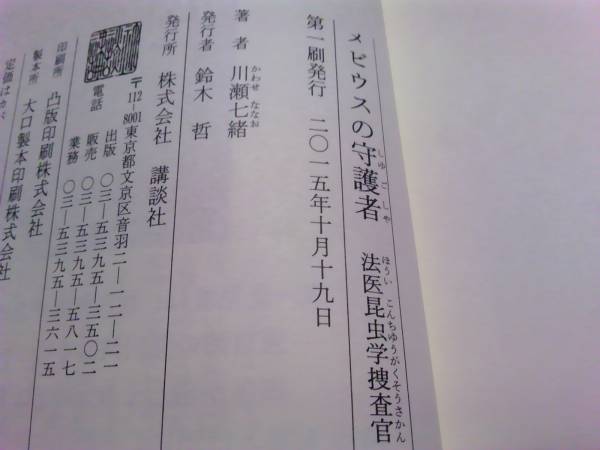 メビウスの守護者 法医昆虫学捜査官
しゅごしゃ ほうい こんちゅうがくそうさかん
第一刷発行 二〇一五年十月十九日
著者 川瀬七緒
かわせ ななお
発行者 鈴木 哲
発行所 株式会社 講談社
〒112-8001 東京都文京区音羽二―一二―二一
電話 出版 〇三―五三九五―三五〇二
販売 〇三―五三九五―五八一七
業務 〇三―五三九五―三六一五
印刷所 凸版印刷株式会社
製本所 大口製本印刷株式会社
定価はカバ